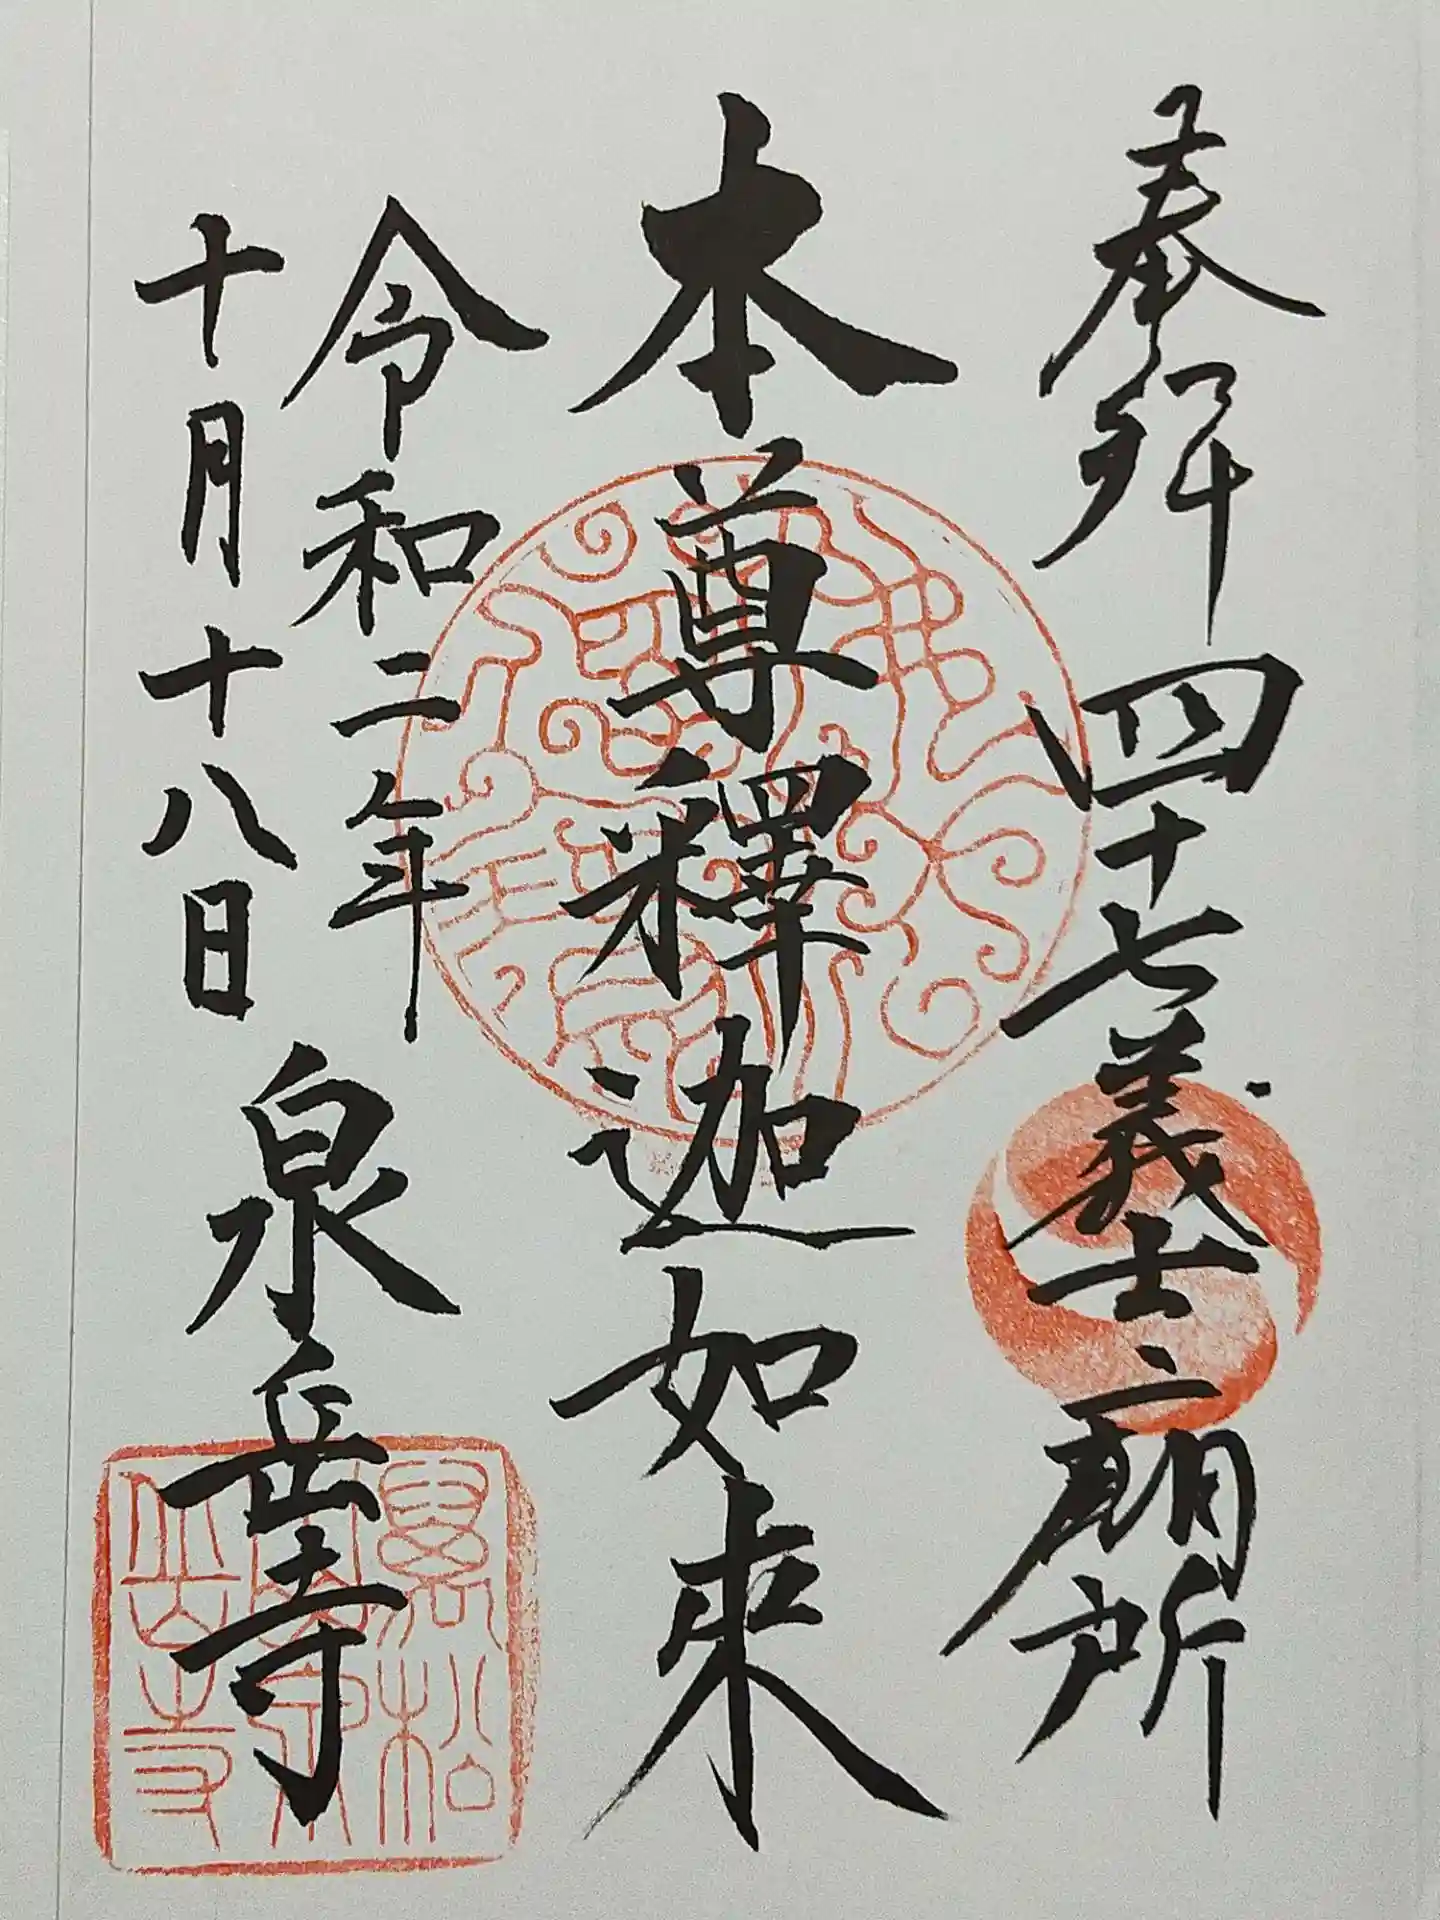 奉拝 四十七義士廟所
本尊釋迦如来
令和二年
十月十八日 泉岳寺
萬松山泉岳寺